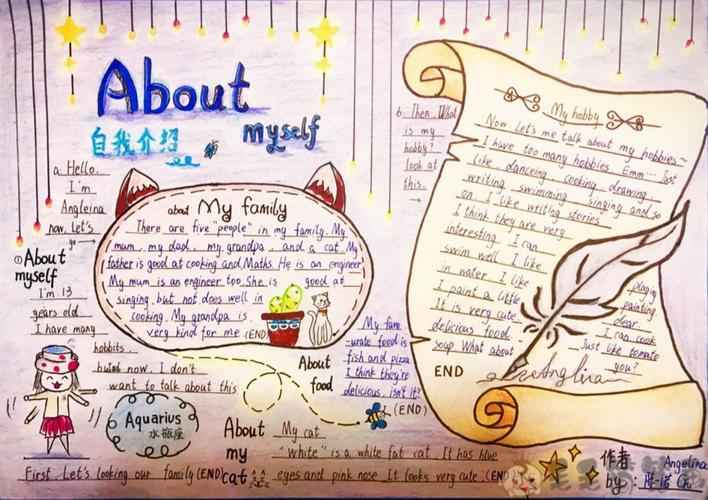 About
自我介绍
myself
a. Hello.
I'm
Angleina
now. Let's
go →
①About
myself
I'm 13
years old
I have many
hobbits.
but now. I don't
want to talk about this
Aquarius
水瓶座
First. Let's looking our family (END)
about My family
There are five "people" in my family. My
mum, my dad, my grandpa, and a cat. My
father is good at cooking and Maths. He is an engineer
My mum is an engineer too. She is good at
singing. but not does well in
cooking. My grandpa is
very kind for me (END)
About
food
My favo
urate food is
fish and pizza
I think they're
delicious. isn't it?
(END)
About
my
cat
My cat
"white" is a white fat cat. It has blue
eyes and pink nose. It looks very cute. (END)
6. Then. What
is my
hobby?
look at
this.
→
My hobby
Now. Let's me talk about my hobbies~
I have too many hobbies. Emm... Just
like danceing, cooking, drawing,
writing, swimming, singing and so
on. I like writing stories
I think they are very
interesting. I can
swim well. I like
play
in water. I like
painting
I paint a little
clear
It is very cute
I can cook
delicious food.
Just like tomato
soup. What about
you?
END
Anglina
作者
by:
Angelina